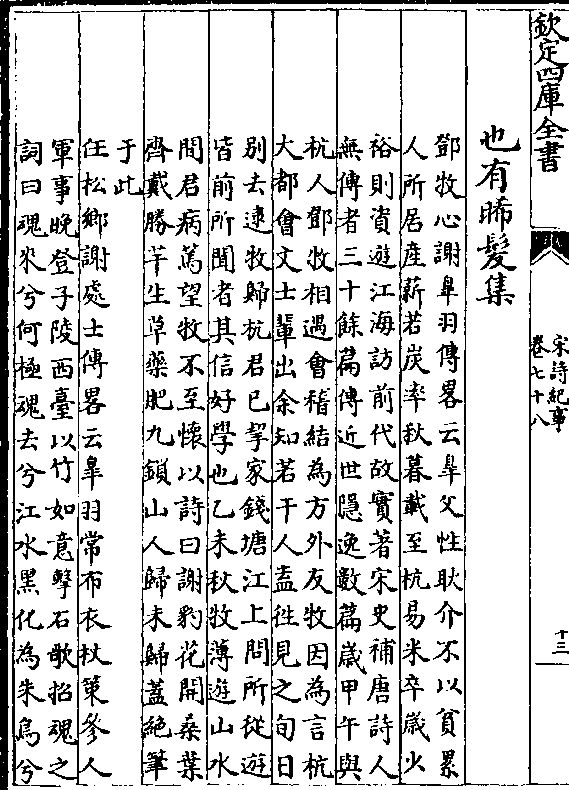 欽定四庫全書
宋詩紀事
卷七十八
十三
也有晞髮集
鄧牧心謝臯羽傳畧云臯父性耿介不以貧累
人所居産薪若炭率秋暮載至杭易米卒歲少
裕則資遊江海訪前代故實著宋史補唐詩人
無傳者三十餘篇傳近世隱逸數篇歲甲午與
杭人鄧牧相遇會稽結為方外友牧因為言杭
大都會文士輩出余知若干人盍徃見之旬日
别去逮牧歸杭君已挈家錢塘江上問所從遊
皆前所聞者其信好學也乙未秋牧薄遊山水
間君病篤望牧不至懷以詩曰謝豹花開桑葉
齊戴勝芊生草藥肥九鎖山人歸未歸蓋絶筆
于此
任松鄉謝處士傳畧云臯羽常布衣杖策參人
軍事晚登子陵西臺以竹如意擊石歌招魂之
詞曰魂來兮何極魂去兮江水黑化為朱鳥兮